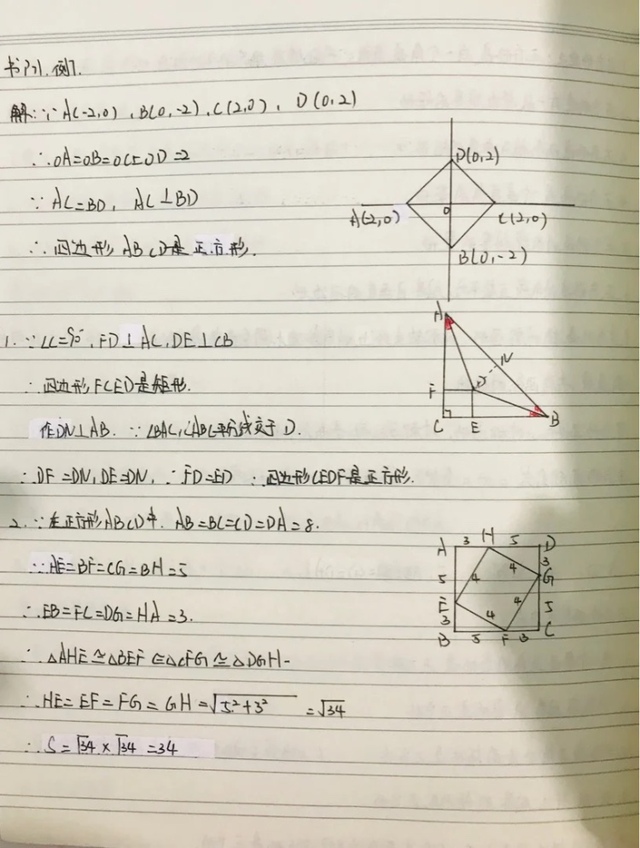 书P31.例7.
解:∵A(-2,0),B(0,-2),C(2,0),D(0,2)
∴OA=OB=OC=OD=2
∵AC=BD,AC⊥BD
∴四边形ABCD是正方形.
D(0,2)
A(-2,0)
O
C(2,0)
B(0,-2)
1.∵∠C=90°,FD⊥AC,DE⊥CB
∴四边形FCED是矩形.
作DN⊥AB.∵∠BAC,∠ABC平分线交于D.
∴DF=DN,DE=DN,∴FD=ED∴四边形CEDF是正方形.
A
N
F
D
C
E
B
2.∵在正方形ABCD中,AB=BC=CD=DA=8.
∵AE=BF=CG=BH=5
∴EB=FC=DG=HA=3.
∴△AHE≌△BEF≌△CFG≌△DGH
∴HE=EF=FG=GH=√5²+3² =√34
∴S=√34×√34=34
A 3 H 5 D
5 4 4 3 G
E
3 4 4 5
B 5 F 3 C